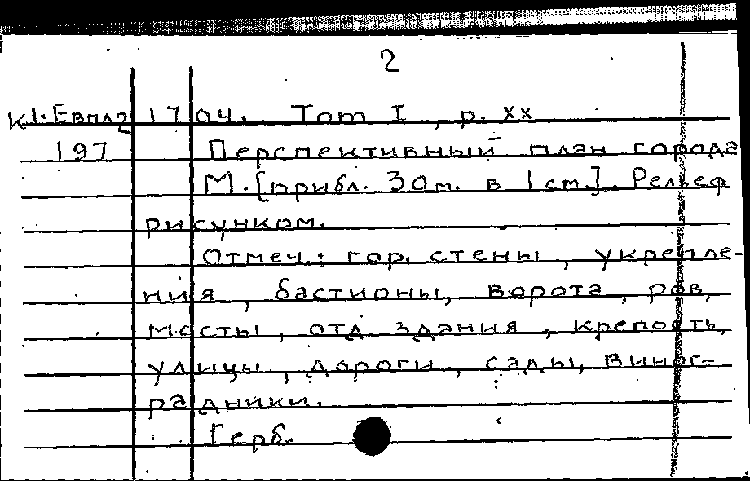 2
К1-Евпл2 1704. Том I, р. XX
197 Перспективный план города
М. [прибл. 30м. в 1 см.]. Рельеф
рисунком.
Отмеч.: гор. стены, укрепле-
ния, бастионы, ворота, ров,
мосты, отд. здания, крепость,
улицы, дороги, сады, виног-
радники.
Герб.